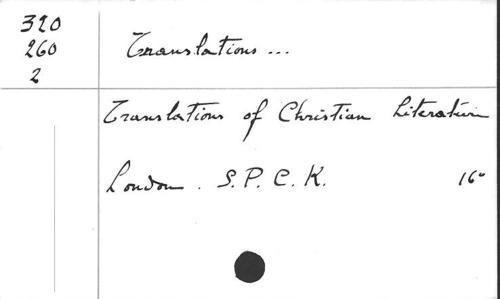 320
260
2
Translations ...
Translations of Christian Literature
London. S. P. C. K. 16°